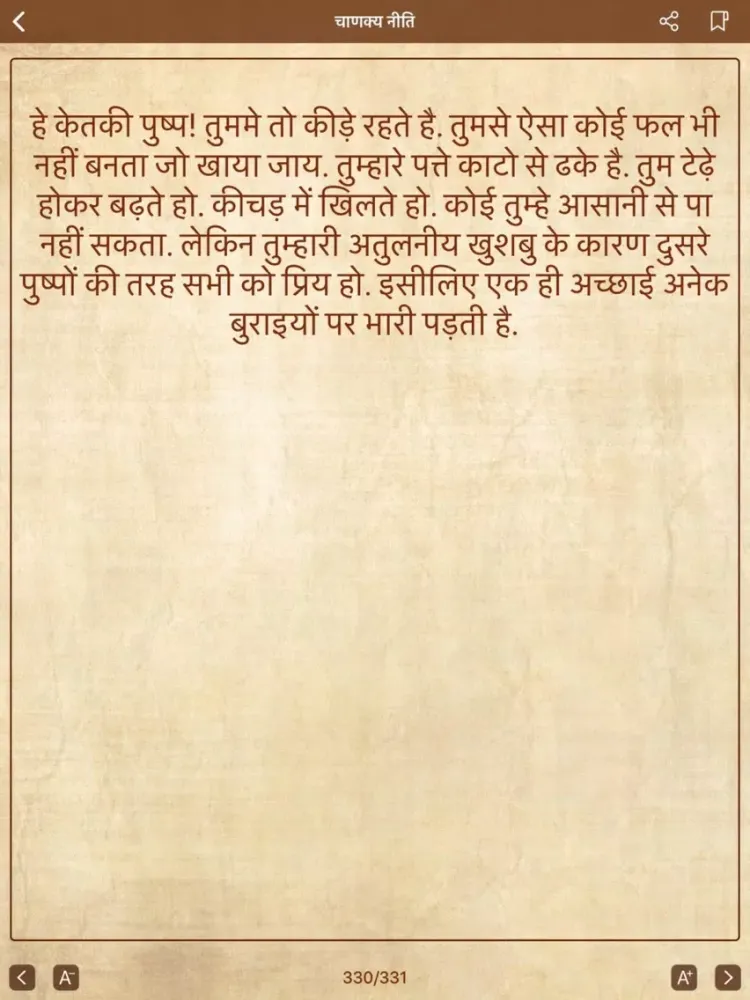 चाणक्य नीति
हे केतकी पुष्प! तुममे तो कीड़े रहते है. तुमसे ऐसा कोई फल भी
नहीं बनता जो खाया जाय. तुम्हारे पत्ते काटो से ढके है. तुम टेढ़े
होकर बढ़ते हो. कीचड़ में खिलते हो. कोई तुम्हे आसानी से पा
नहीं सकता. लेकिन तुम्हारी अतुलनीय खुशबु के कारण दुसरे
पुष्पों की तरह सभी को प्रिय हो. इसीलिए एक ही अच्छाई अनेक
बुराइयों पर भारी पड़ती है.
A-
330/331
A+